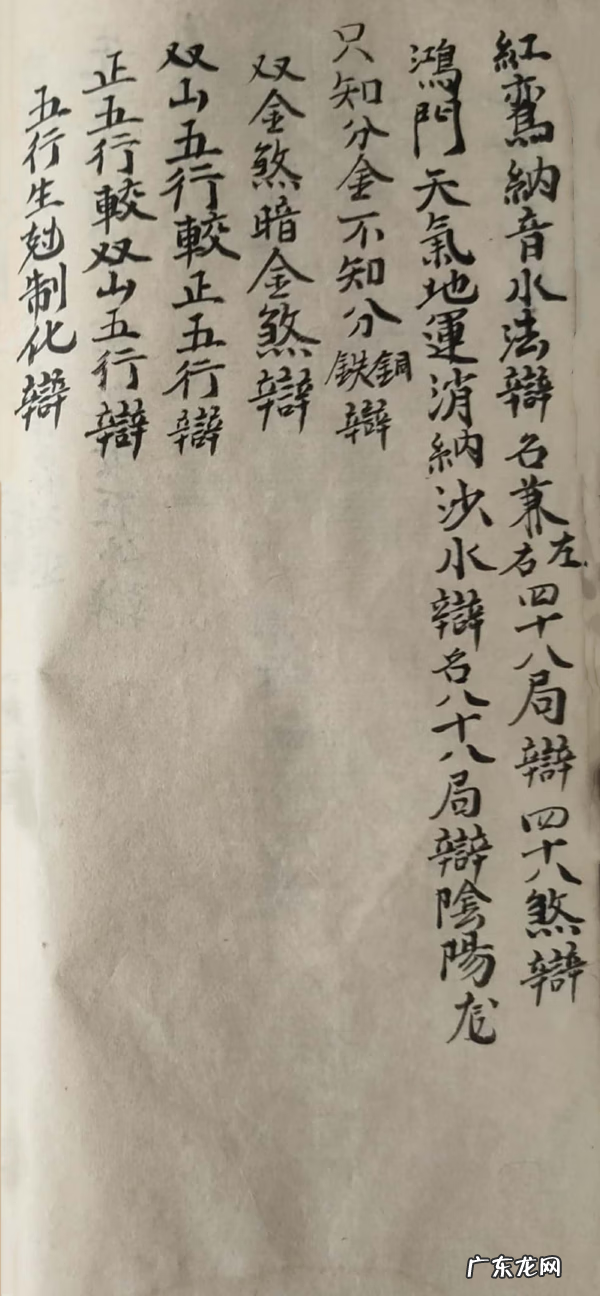 紅鸞納音水法辯名兼左右四十八局辯四十八煞辯
鴻門天氣地運消納沙水辯名八十八局辯陰陽龙
只知分金不知分銅鉄辯
双金煞暗金煞辯
双山五行較正五行辯
正五行較双山五行辯
五行生尅制化辯
广东龙网